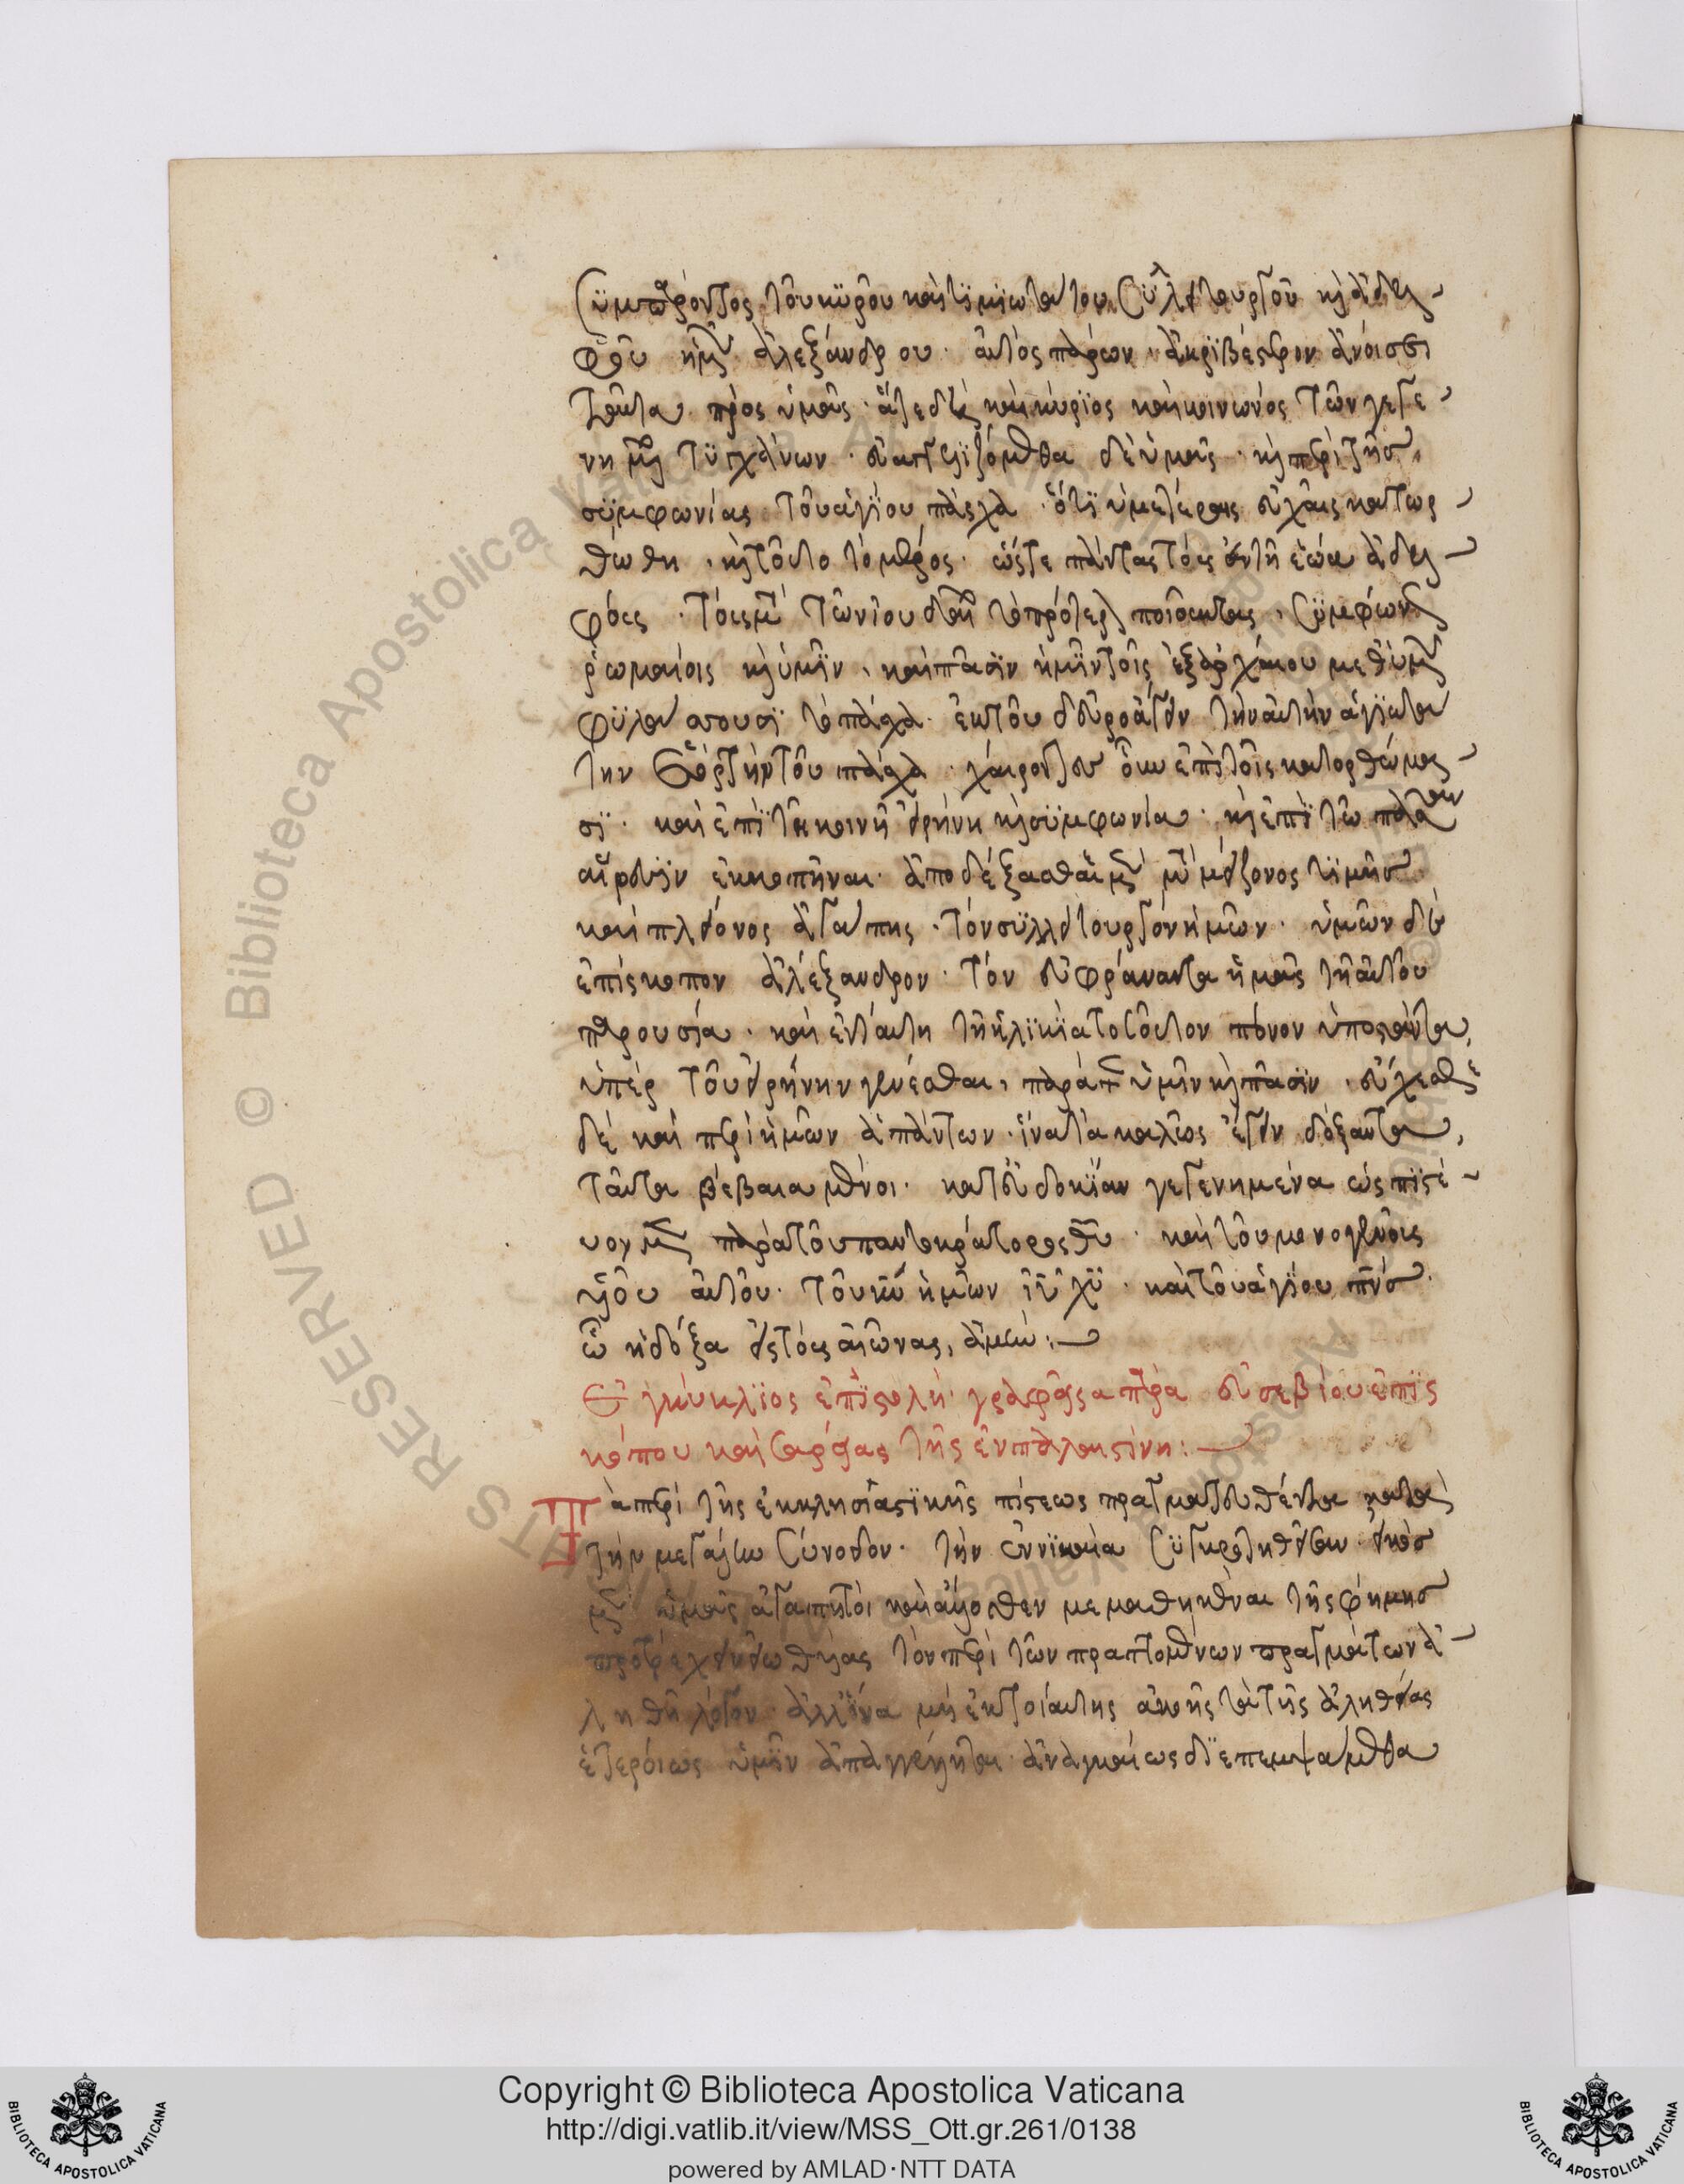 Συμπαρόντος τοῦ κυρίου καὶ τιμιωτάτου συλλειτουργοῦ καὶ ἀδελ
φοῦ ἡμῶν ἀλεξάνδρου. αὐτὸς παρὼν, ἀκριβέστερον ἀνοίσει
ταῦτα πρὸς ὑμᾶς. ἅτε δὴ καὶ κύριος καὶ κοινωνὸς τῶν γεγε
νημένων τυγχάνων. εὐαγγελιζόμεθα δὲ ὑμᾶς. καὶ περὶ τῆς
συμφωνίας τοῦ ἁγίου πάσχα. ὅτι ὑμετέραις εὐχαῖς κατωρ
θώθη, καὶ τοῦτο τὸ μέρος. ὥστε πάντας τοὺς ἐν τῇ ἑώα ἀδελ
φοὺς. τοὺς μετὰ τῶν ἰουδαίων τὸ πρότερον ποιοῦντας, συμφώνως
ῥωμαίοις καὶ ὑμῖν, καὶ πᾶσιν ἡμῖν τοῖς ἐξ ἀρχαίου μεθ' ὑμῶν
φυλάττουσι τὸ πάσχα. ἐκ τοῦ δεῦρο ἄγειν τὴν αὐτὴν ἁγιωτά
την ἑορτὴν τοῦ πάσχα. χαίροντες οὖν ἐπὶ τοῖς κατορθώμα
σι. καὶ ἐπὶ τῇ κοινῇ εἰρήνη καὶ συμφωνία. καὶ ἐπὶ τῶ πᾶσαν
αἵρεσιν ἐκκοπῆναι. ἀποδέξασθαι μὲν μετὰ μείζονος τιμῆς
καὶ πλείονος ἀγάπης. τὸν συλλειτουργὸν ἡμῶν. ὑμῶν δὲ
ἐπίσκοπον ἀλέξανδρον. τὸν εὐφράναντα ἡμᾶς τῇ αὐτοῦ
παρουσία. καὶ ἐν ταύτη τῇ ἡλικία τοσοῦτον πόνον ὑποστάντα,
ὑπὲρ τοῦ εἰρήνην γενέσθαι, παρά τε ὑμῖν καὶ πᾶσιν. εὔχεσθε
δὲ καὶ περὶ ἡμῶν ἁπάντων. ἵνα τὰ καλῶς ἔχειν δόξαντα,
ταῦτα βέβαια μένοι. κατ' εὐδοκίαν γεγενημένα ὡς πιστεύ
ομεν παρὰ τοῦ παντοκράτορος θῦ. καὶ τοῦ μονογενοῦς
υἱοῦ αὐτοῦ. τοῦ κῦ ἡμῶν ιῦ χῦ. καὶ τοῦ ἁγίου πνς.
ὧ ἡ δόξα εἰς τοὺς αἰῶνας, ἀμήν:
Ἐγκύκλιος ἐπιστολὴ γραφεῖσα παρὰ εὐσεβίου ἐπισ
κόπου καισαρείας τῆς ἐν παλαιστίνη:
Τὰ περὶ τῆς ἐκκλησιαστικῆς πίστεως πραγματευθέντα κατὰ
τὴν μεγάλην σύνοδον. τὴν ἐν νικαία συγκροτηθεῖσαν. εἰκὸς
μὲν ὑμᾶς ἀγαπητοὶ καὶ ἄλλοθεν μεμαθηκέναι τῆς φήμης
προτρέχειν εἰωθυίας τὸν περὶ τῶν πραττομένων πραγμάτων ἀ
ληθῆ λόγον. ἀλλ' ἵνα μὴ ἐκ τοιαύτης ἀκοῆς τὰ τῆς ἀληθείας
ἑτεροίως ὑμῖν ἀπαγγέληται ἀναγκαίως διεπεμψάμεθα
Copyright © Biblioteca Apostolica Vaticana
http://digi.vatlib.it/view/MSS_Ott.gr.261/0138
powered by AMLAD·NTT DATA
BIBLIOTECA APOSTOLICA VATICANA
BIBLIOTECA APOSTOLICA VATICANA